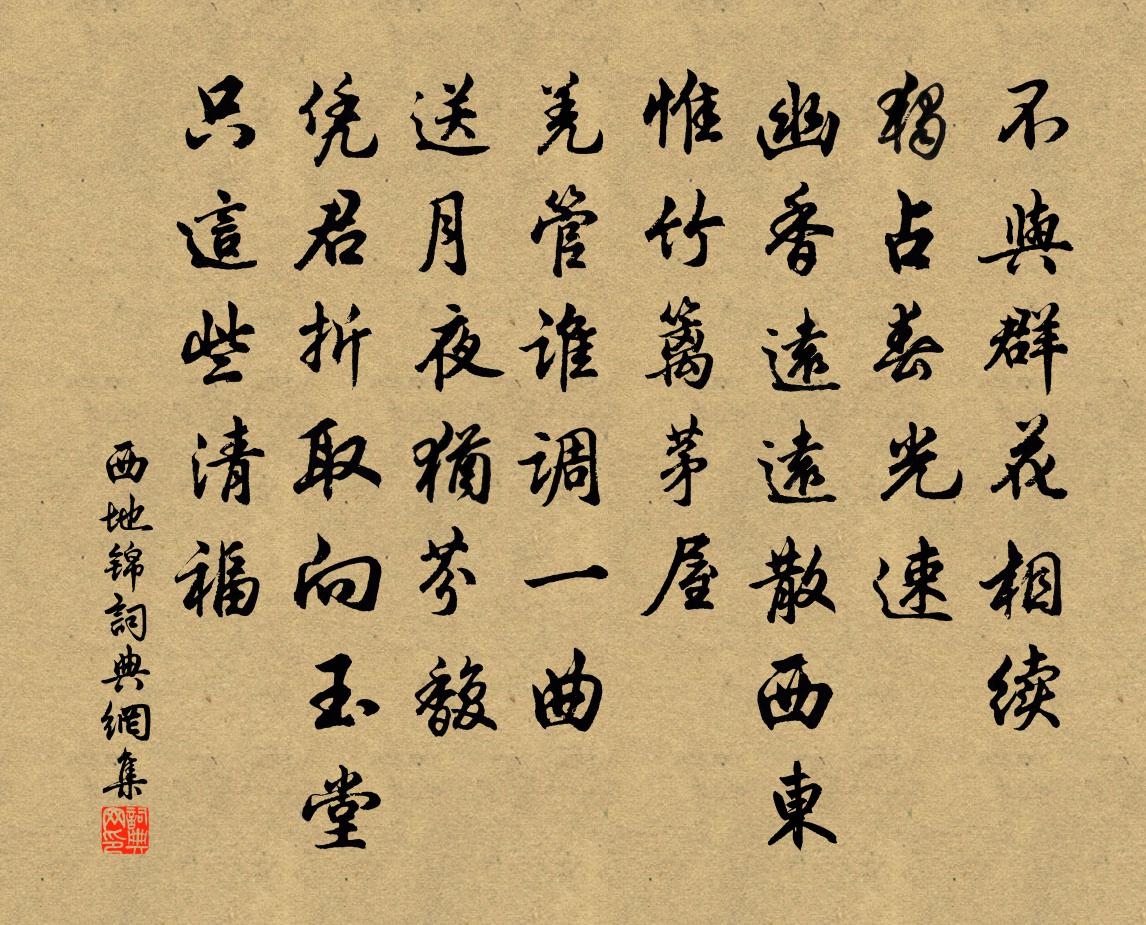 不與群花相續
獨占春光速
幽香遠遠散西東
惟竹籬茅屋
羌管谁調一曲
送月夜猶芬馥
凭君折取向玉堂
只這些清福
西地锦詞典網集
詞典网印